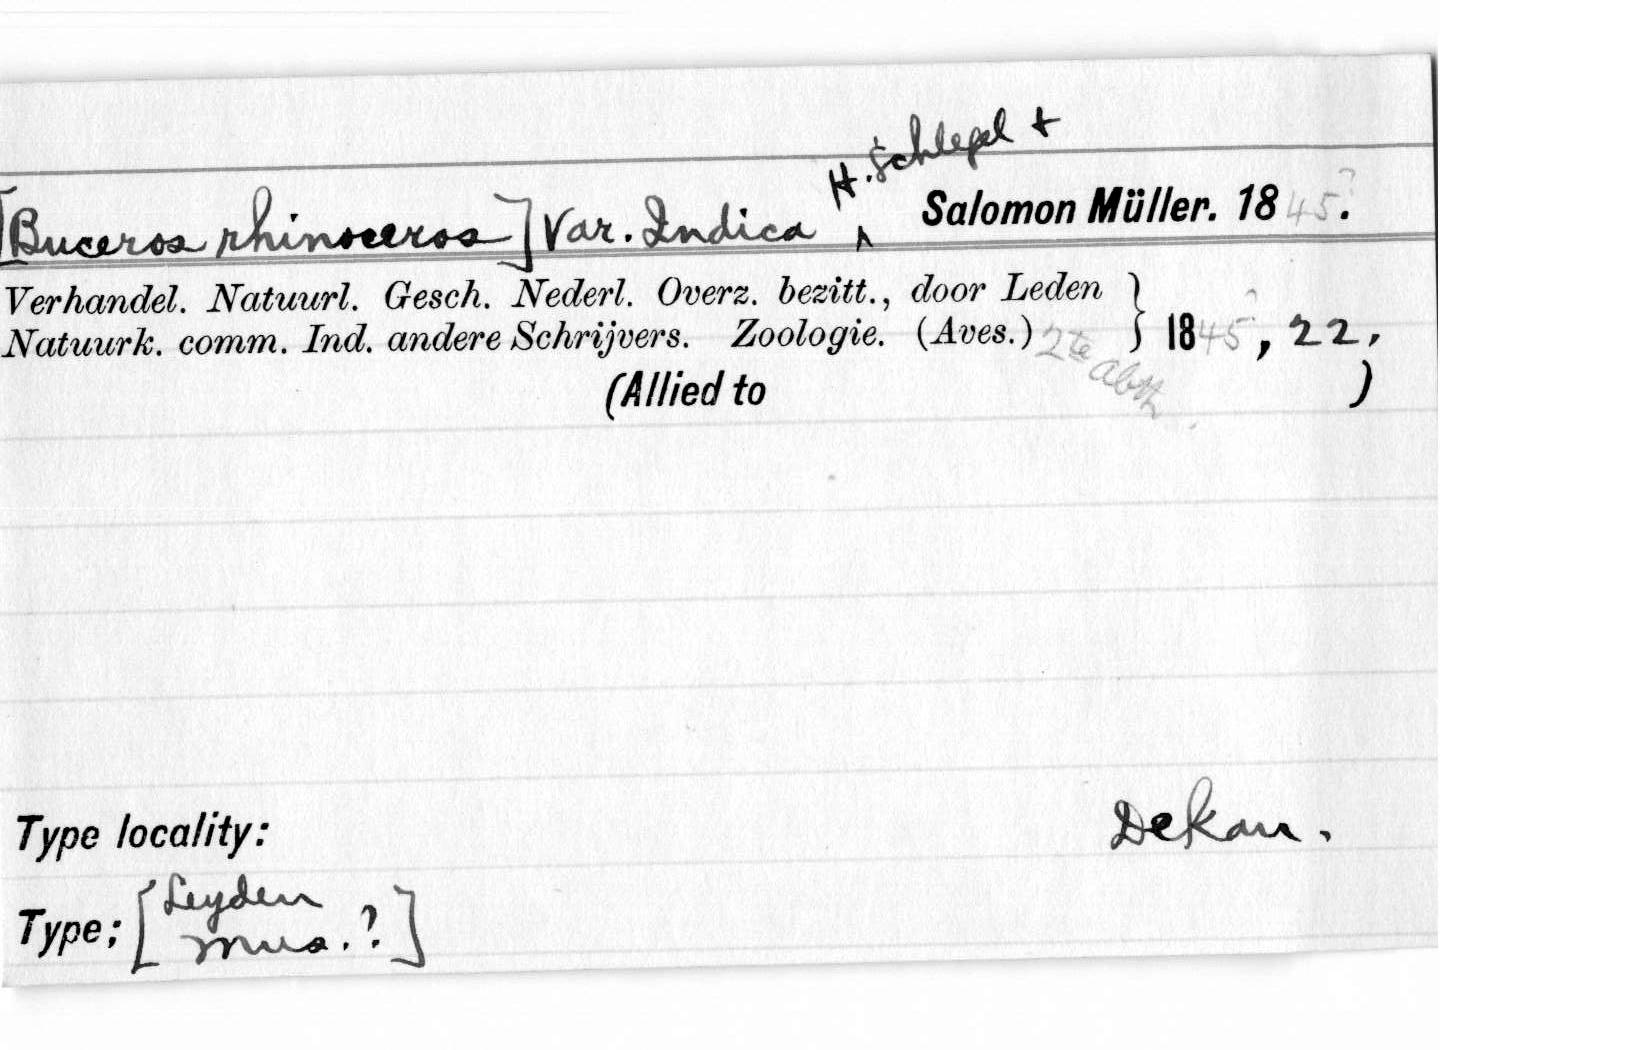 [Buceros rhinoceros] Var. Indica ^ H. Schlegel + Salomon Müller. 1845?.
Verhandel. Natuurl. Gesch. Nederl. Overz. bezitt., door Leden
Natuurk. comm. Ind. andere Schrijvers. Zoologie. (Aves.) 2te Abth. } 1845?, 22,
(Allied to )
Type locality: Dekan.
Type; [Leyden
Mus.?]